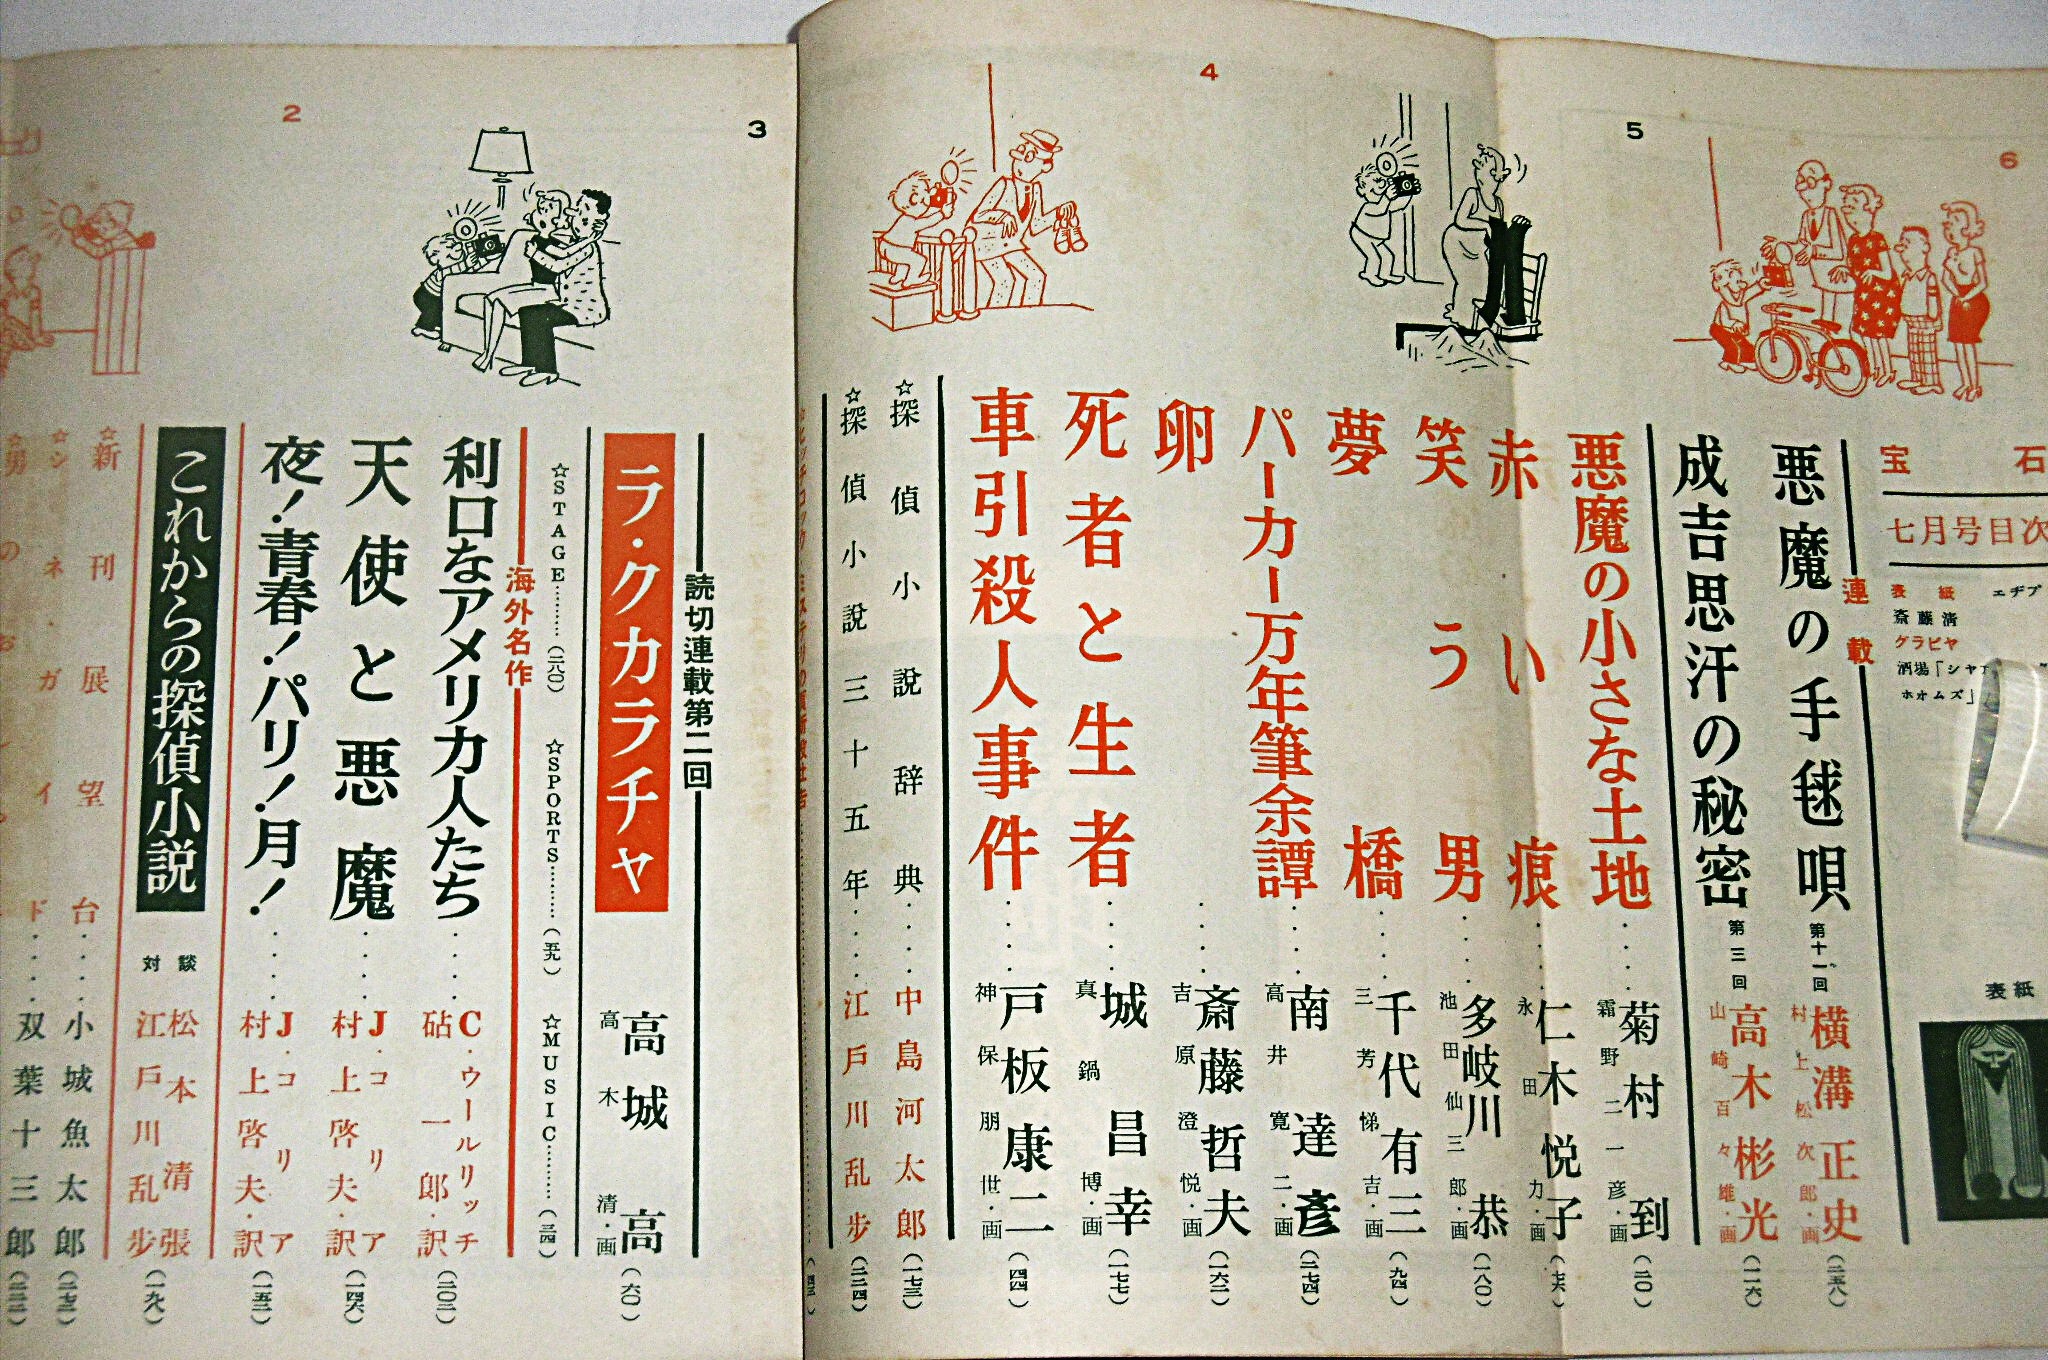 6
5
4
3
2
宝石
七月号目次
表紙 エヂプ
斎藤清
グラビヤ
酒場「シャ
ホオムズ」
表紙
連載
悪魔の手毬唄 第十一回 横溝正史 村上松次郎・画 (二五八)
成吉思汗の秘密 第三回 高木彬光 山崎百々雄・画 (一一六)
悪魔の小さな土地‥‥菊村到 霜野二一彦・画 (二〇)
赤い痕‥‥仁木悦子 永田力・画 (七六)
笑う男‥‥多岐川恭 池田仙三郎・画 (一八〇)
夢橋‥‥千代有三 三芳悌吉・画 (九四)
パーカー万年筆余譚‥‥南達彦 高井寛二・画 (二七四)
卵‥‥斎藤哲夫 吉原澄悦・画 (一六二)
死者と生者‥‥城昌幸 真鍋博・画 (一七七)
車引殺人事件‥‥戸板康二 神保朋世・画 (四四)
☆探偵小説辞典‥‥中島河太郎 (一七三)
☆探偵小説三十五年‥‥江戸川乱歩 (二二四)
読切連載第二回
ラ・クカラチャ 高城高 高木清・画 (六〇)
☆STAGE‥‥(二八〇) ☆SPORTS‥‥(五九) ☆MUSIC‥‥
海外名作
利口なアメリカ人たち‥‥C・ウールリッチ 砧一郎・訳 (二〇二)
天使と悪魔‥‥J・コリア 村上啓夫・訳 (一四六)
夜!青春!パリ!月!‥‥J・コリア 村上啓夫・訳 (一五二)
これからの探偵小説 対談 松本清張 江戸川乱歩 (一九八)
☆新刊展望台‥‥小城魚太郎
☆シネ・ガイド‥‥双葉十三郎